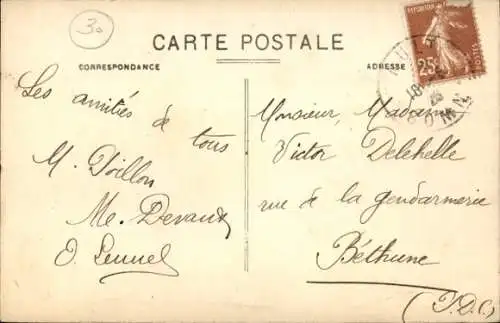 30
CARTE POSTALE
CORRESPONDANCE
ADRESSE
25c
Les amitiés de
tous
M. Doillon
Me. Devaux
Monsieur, Madame
Victor Delehelle
rue de la gendarmerie
Béthune
(P.D.C.)